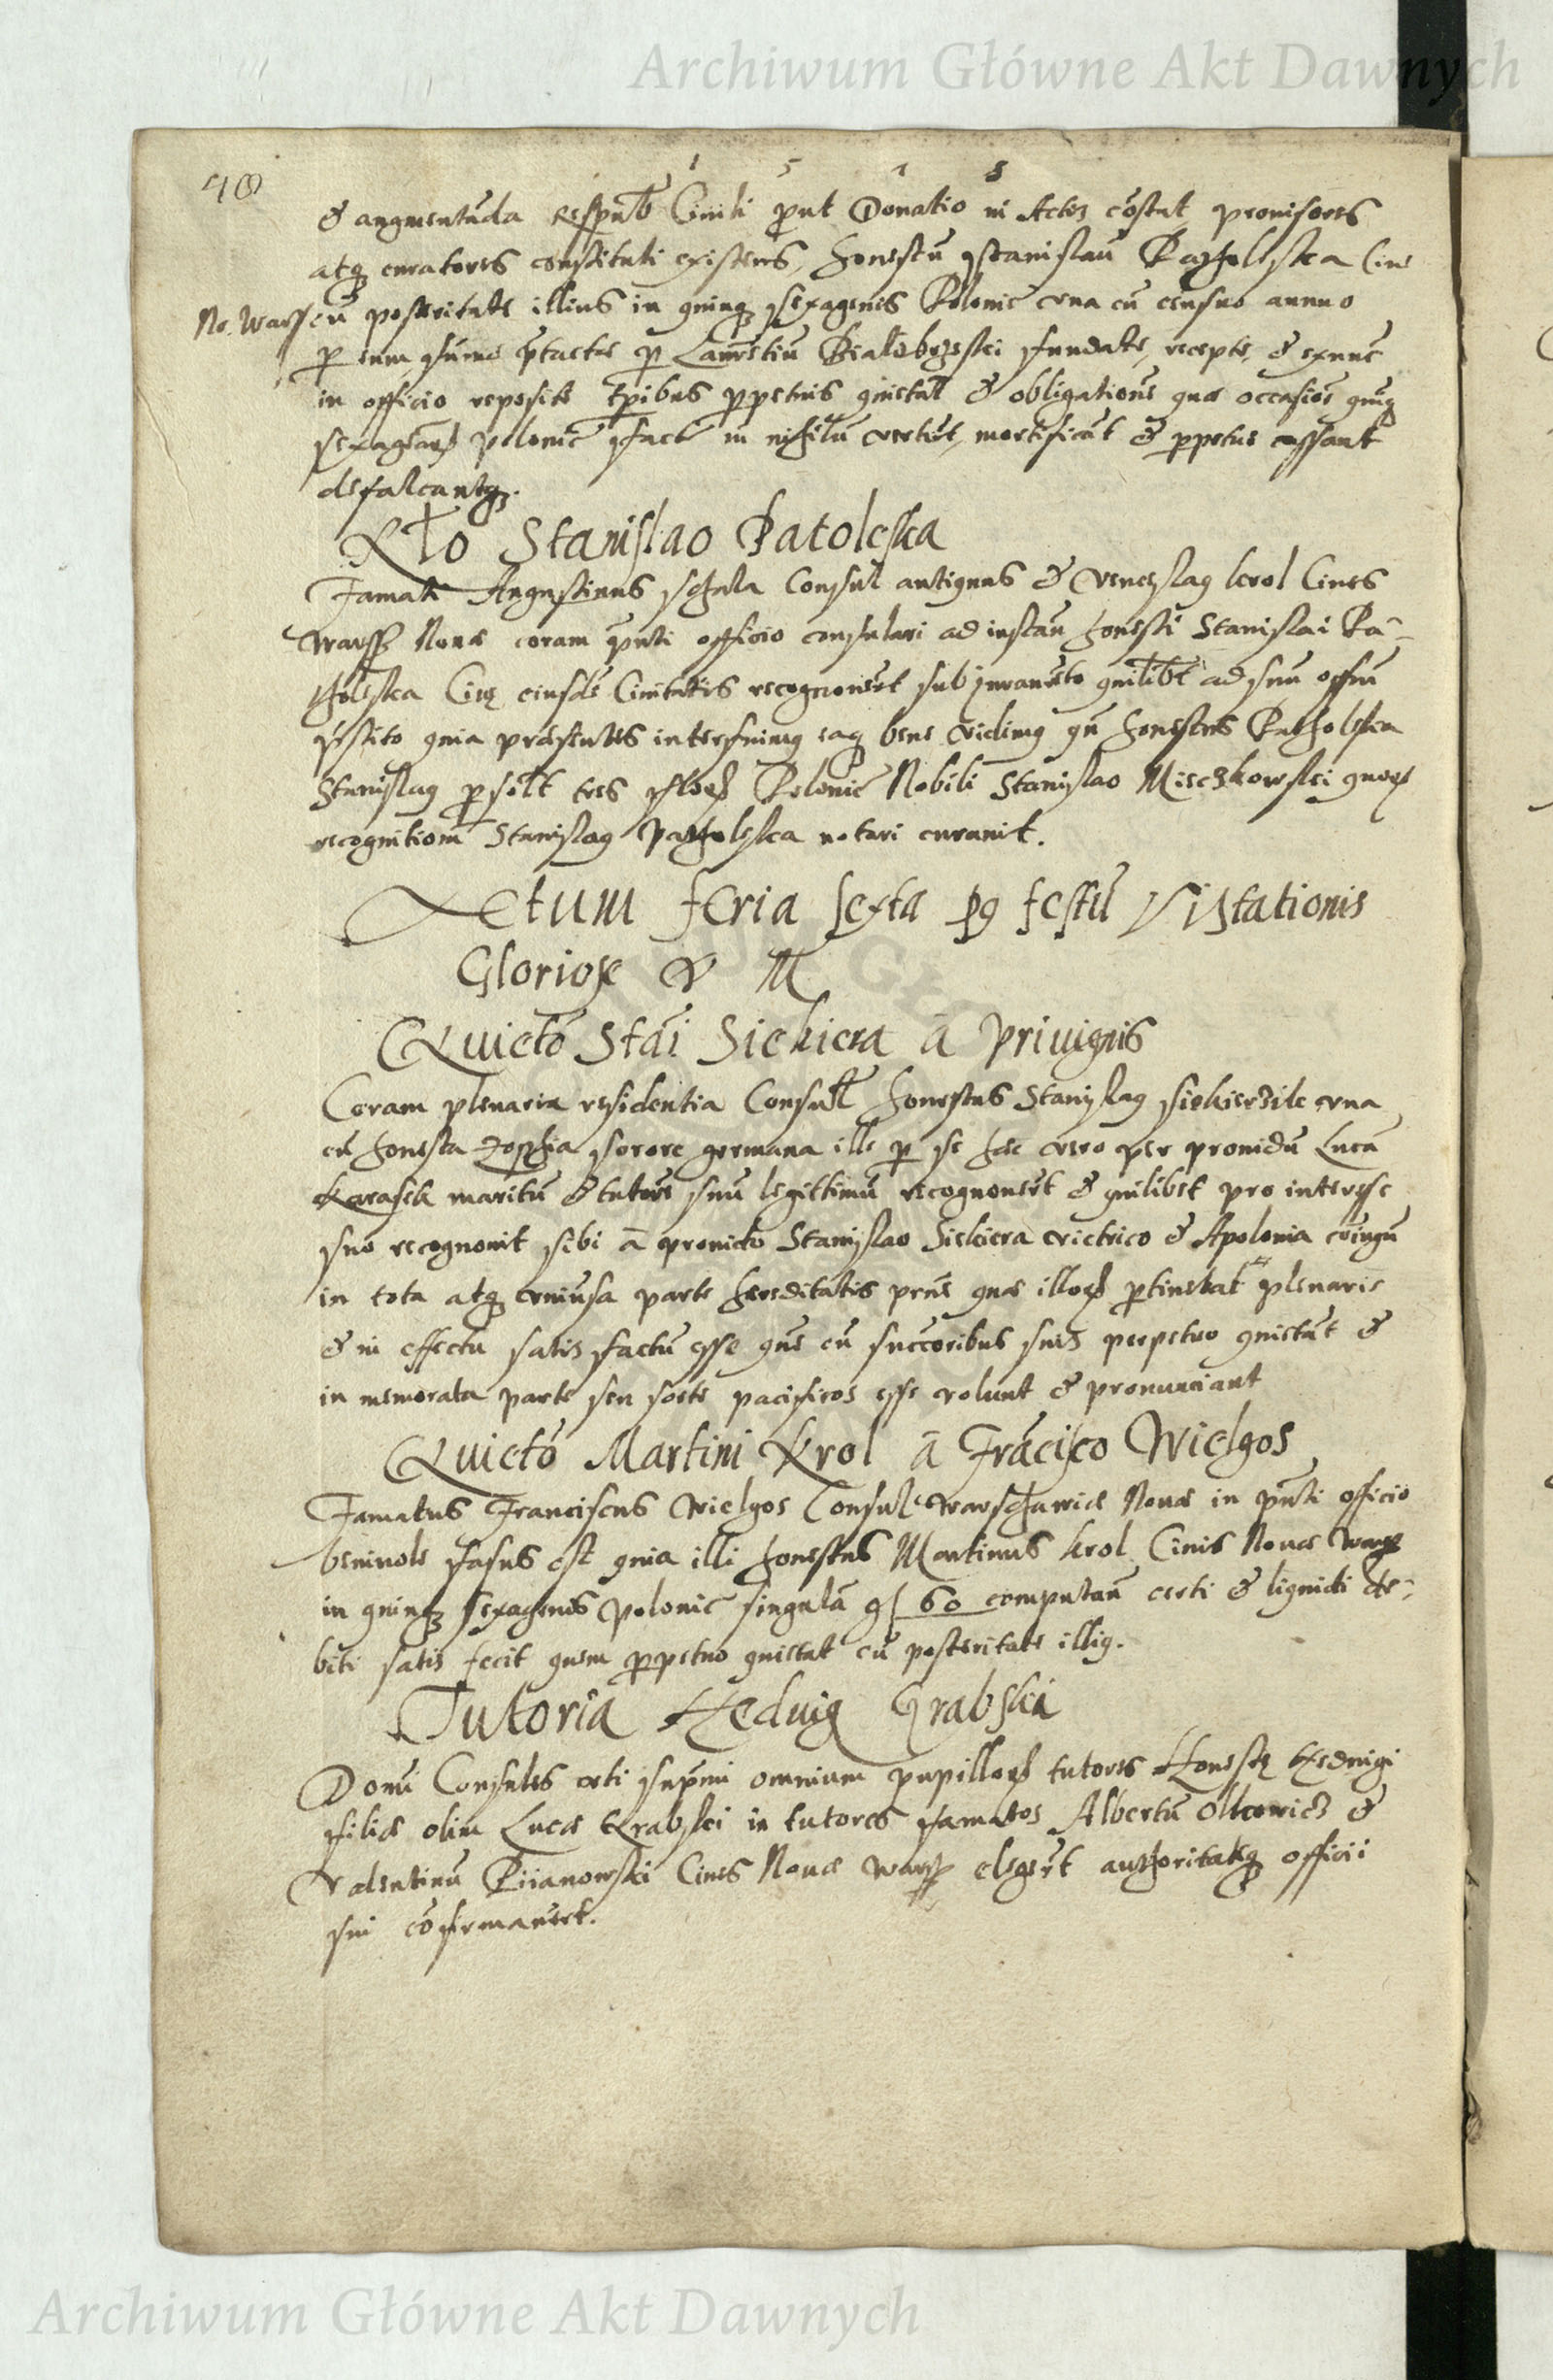 Archiwum Główne Akt Dawnych
98
1 5 7 8
& augmentāda Respub Civili ꝓut Donatio in Actis cōstat provisores
atq curatores constituti existens, honestū Stanislaū Patholeska Cive
No. Warss cū posteritate illius in quinq sexagenis Polonic una cū censuo annuo
ꝑ eum sūme ꝑtactae ꝑ Laurētiū Bialobrzeski fundate, recepte, & exnunc
in officio reposite tꝑibus ꝑpetuis quietāt & obligationē que occasioē quiq
sexagenaꝝ polonic facte in nihilū vertūt, mortificāt & ꝑpetue cassant
defalcantq.
Rło Stanislao Patoleska
Famati Augustinus schula Consul antiquus & Venceslaq krol Cives
Warss Novae coram ꝑnti officio consulari ad instan honesti Stanislai Pa-
tholeska Civ eiusdē Civitatis recognoverūt sub juramēto quilibt ad suū offiū
ꝑstito quia praesentes interfuimq eaq bene vidimq qn honestus Patholeska
Stanislaq ꝑsolt tres floꝝ Polonic Nobili Stanislao Mieczkowski quaꝝ
recognitionē Stanislaq Patholeska notari curavit.
Actum feria sexta pꝰ festū Visitationis
Gloriose V M
Quietō Stāi Siekiera ā privignis
Coram plenaria residentia Consult honestus Stanislaq siekierzik una
cū honesta zophia sorore germana ille ꝑ se hec vero per providū Lucā
Karasek maritū & tutorē suū legittimū recognoverūt & quilibet pro interesse
suo recognovit sibi ā provido Stanislao Siekiera vietrico & Apolonia coiugū
in tota atq universa parte hereditatis prne que illoꝝ ꝑtinebat plenarie
& in effectu satis factū esse qns cū succoribus suis perpetuo quietāt &
in memorata parte seu sorte pacificos esse volunt & pronunciant
Quietō Martini Krol ā Frācisco Wielgos
Famatus Franciscus Wielgos Consul Warschaviae Novae in ꝑnti officio
benivole fasus est quia illi honestus Martinus krol Civis Novae Warss
in quinq sexagenis polonic singulā gſ 60 computan certi & liquidi de-
biti satis fecit quem ꝑpetuo quietat cū posteritate illiq.
Tutoria Hedvig Grabski
Domi Consules uti supmi omnium pupilloꝝ tutores Honestę Hedvigi
filiae olim Lucae Grabski in tutores famatos Albertū Olkowicz &
Valentinū Piianowski Cives Novae Warss elegerūt authoritateq officii
sui cōfirmaverūt.
Archiwum Główne Akt Dawnych